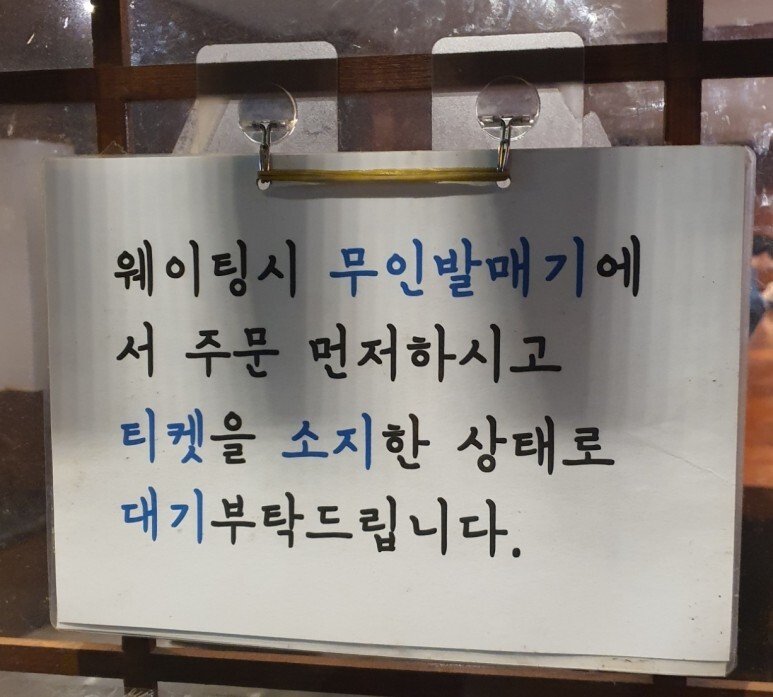 웨이팅시 무인발매기에
서 주문 먼저하시고
티켓을 소지한 상태로
대기부탁드립니다.